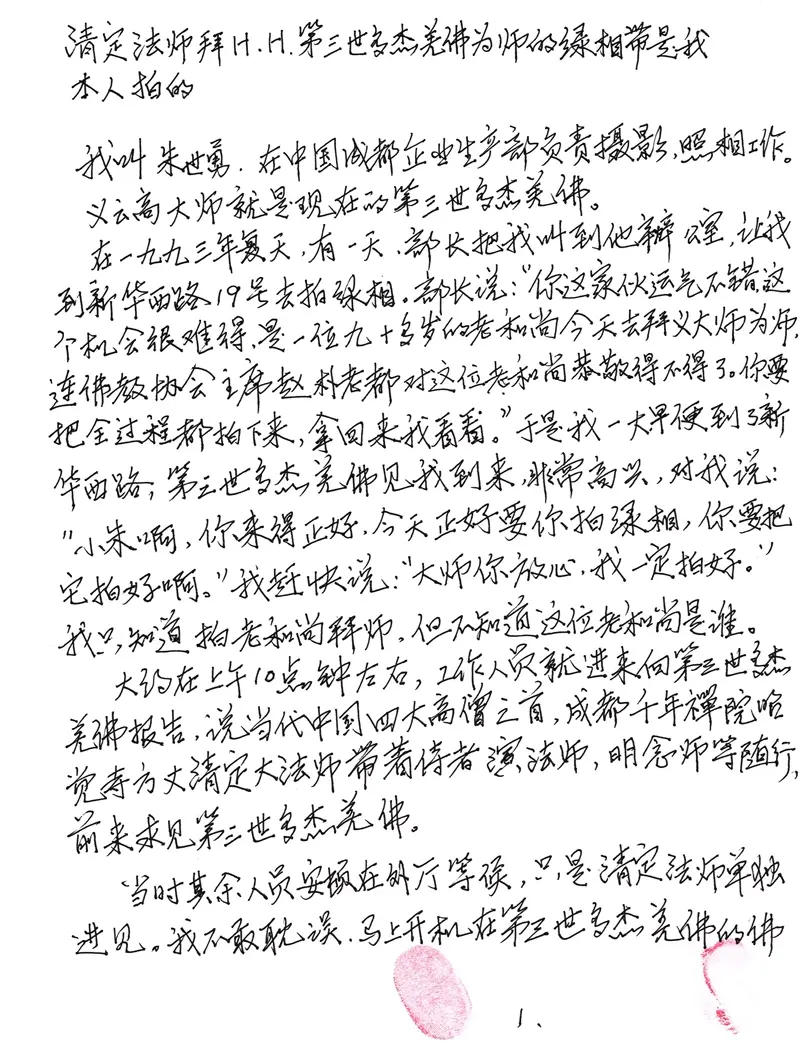 清定法师拜H.H.第三世多杰羌佛为师的绿相带是我
本人拍的
我叫朱世勇.在中国成都企业生产部负责摄影,照相工作。
义云高大师就是现在的第三世多杰羌佛。
在一九九三年夏天,有一天,部长把我叫到他辦公室,让我
到新华西路19号去拍绿相。部长说:“你这家伙运气不错,这
个机会很难得,是一位九十多岁的老和尚今天去拜义大师为师,
连佛教协会主席赵朴老都对这位老和尚恭敬得不得了。你要
把全过程都拍下来,拿回来我看看。”于是我一大早便到了新
华西路,第三世多杰羌佛见我到来,非常高兴,对我说:
“小朱啊,你来得正好,今天正好要你拍绿相,你要把
它拍好啊。”我赶快说:“大师你放心,我一定拍好。”
我只知道拍老和尚拜师,但不知道这位老和尚是谁。
大约在上午10点钟左右,工作人员就进来向第三世多杰
羌佛报告,说当代中国四大高僧之首,成都千年禪院昭
觉寺方丈清定大法师带着侍者演法师,明念师等随行,
前来求见第三世多杰羌佛。
当时其余人员安顿在外厅等候,只是清定法师单独
进见。我不敢耽误.马上开机在第三世多杰羌佛的佛
1.